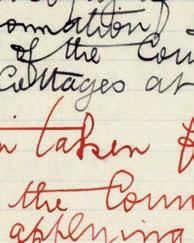 ormation
of the Cou
Cottages at
n taken f
the Coun
applying